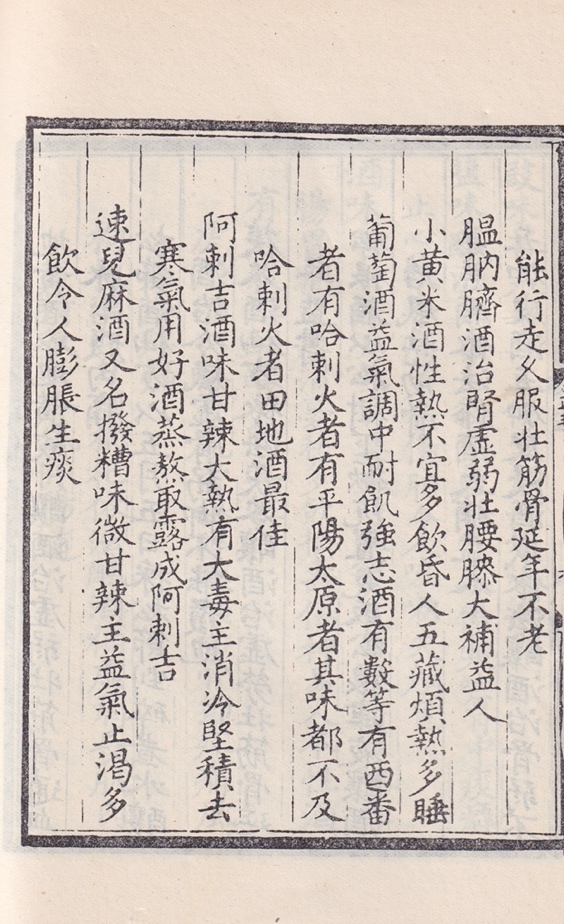 能行走久服壮筋骨延年不老
腽肭臍酒治腎虛弱壮腰膝大補益人
小黄米酒性熱不宜多飲昏人五藏煩熱多睡
葡萄酒益氣調中耐飢強志酒有數等有西番
者有哈剌火者有平陽太原者其味都不及
哈剌火者田地酒最佳
阿剌吉酒味甘辣大熱有大毒主消冷堅積去
寒氣用好酒蒸熬取露成阿剌吉
速兒麻酒又名撥糟味微甘辣主益氣止渴多
飲令人膨脹生痰